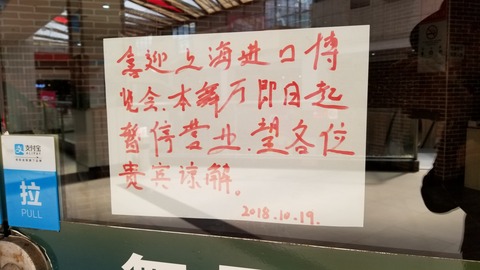 喜迎上海进口博
览会.本舞厅即日起
暂停营业.望各位
贵宾谅解。
2018.10.19.
支付宝
ALIPAY
拉
PULL